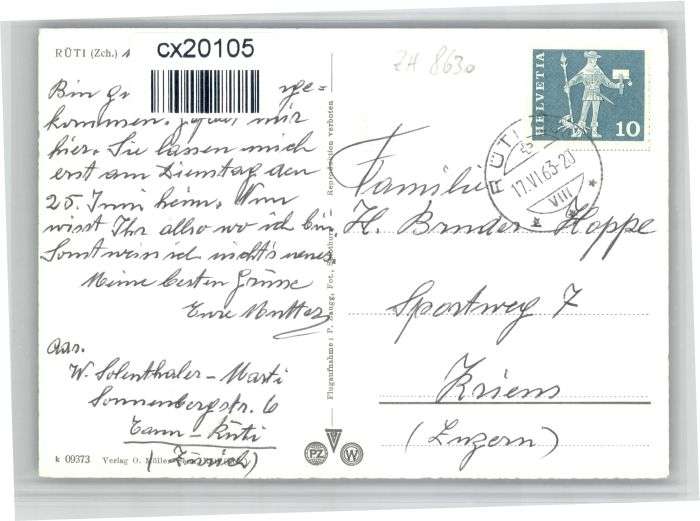 RÜTI (Zch.)
cx20105
ZH 8630
HELVETIA
10
RÜTI
17.VI.63-20
VIII
Bin ge-
kommen. mir
hier. Sie lassen mich
erst am Dienstag den
25. Juni heim. Nun
wisst Ihr allso wo ich bin
Sonst weis ich nichts neues
Meine besten Grüsse
Eure Mutter
Adr.
W. Solenthaler-Marti
Sonnenbergstr. 6
Tann-Rüti
(Zürich)
k 09373 Verlag O. Müller
Flugaufnahme: P. Zaugg, Fot., Reproduktion verboten
PZ W
Familie
H. Bruder Hoppe
Sportweg 7
Kriens
(Luzern)